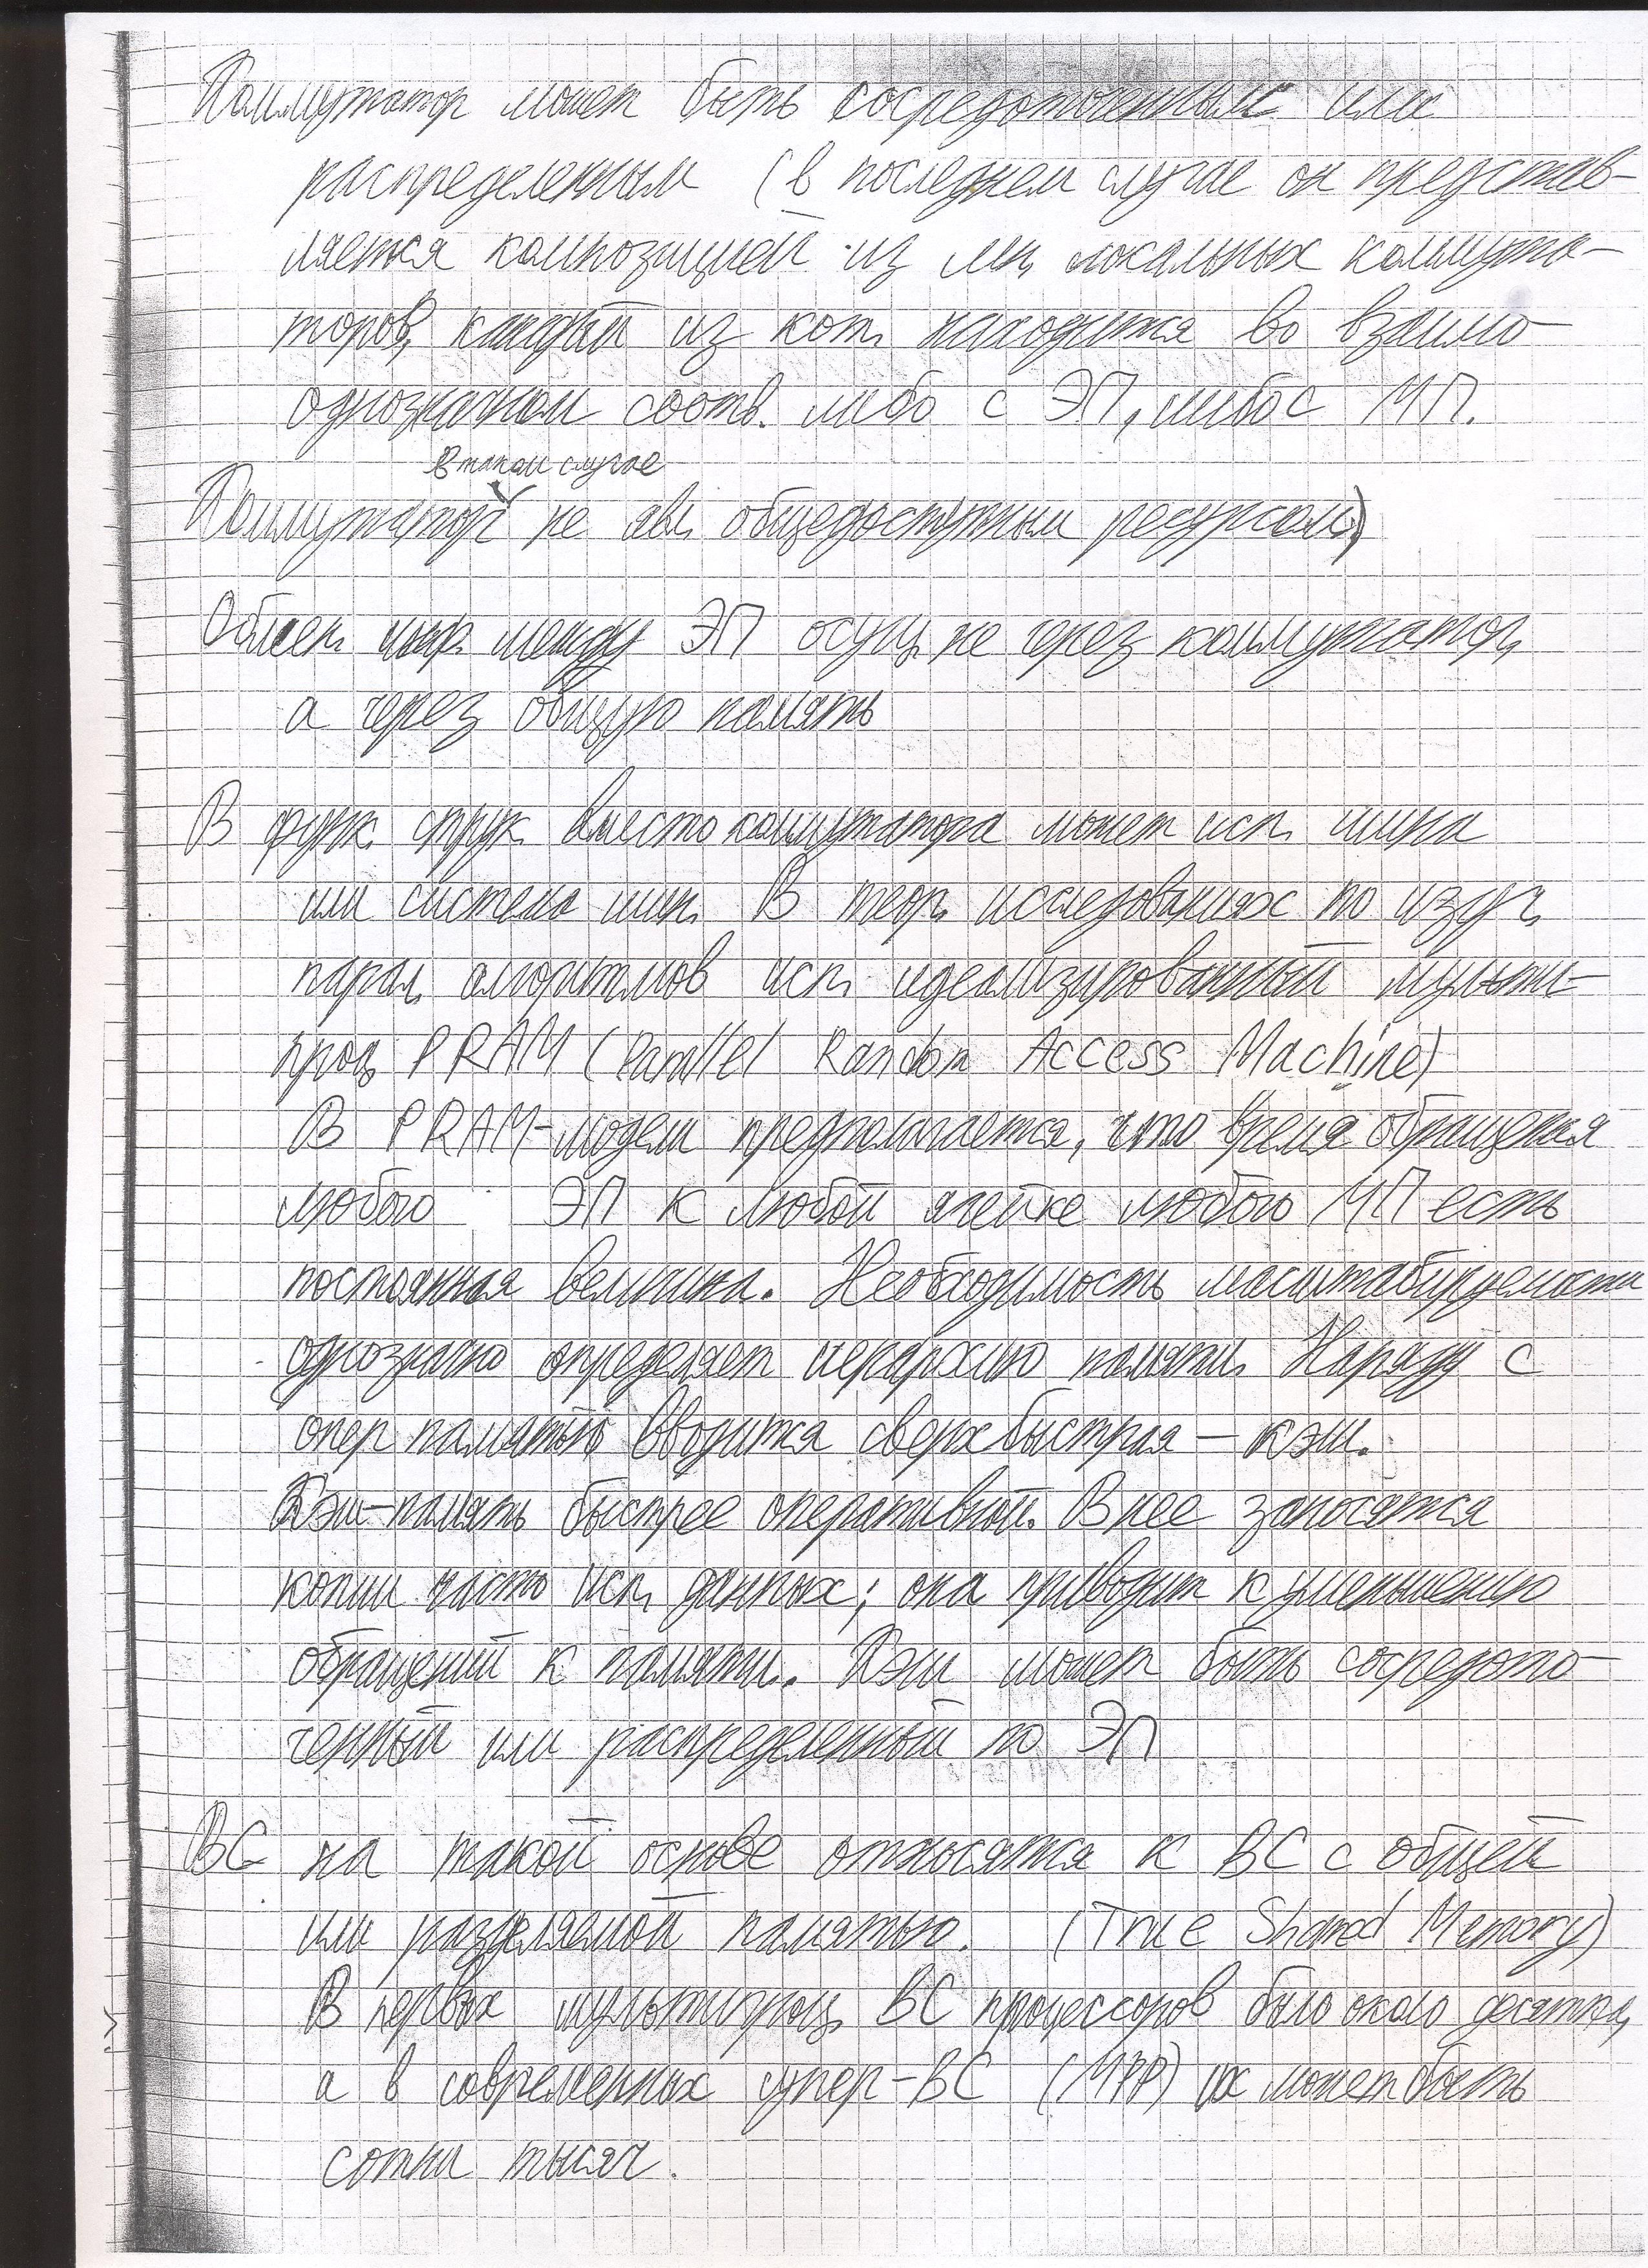 Коммутатор может быть сосредоточенным или
распределенным (в последнем случае он представ-
ляется композицией из мн. локальных коммута-
торов, каждый из кот. находится во взаимо-
однозначном соотв. либо с ЭП, либо с МП.
в таком случае
Коммутатор не явл. общедоступным ресурсом)
Обмен инф. между ЭП осущ. не через коммутатор,
а через общую память
В функ. струк. вместо коммутатора может исп. шина
или система шин. В теор. исследованиях по изуч.
парал. алгоритмов исп. идеализированный мульти-
проц. PRAM (Parallel Random Access Machine)
В PRAM-модели предполагается, что время обращения
любого ЭП к любой ячейке любого МП есть
постоянная величина. Необходимость масштабируемости
однозначно определяет иерархию памяти. Наряду с
опер памятью вводится сверхбыстрая – кэш.
Кэш-память быстрее оперативной. В нее заносятся
копии часто исп. данных; она приводит к уменьшению
обращений к памяти. Кэш может быть сосредото-
ченный или распределенный по ЭП
ВС на такой основе относятся к ВС с общей
или разделяемой памятью. (True Shared Memory)
В первых мультипроц. ВС процессоров было около десятка,
а в современных супер-ВС (MPP) их может быть
сотни тысяч.